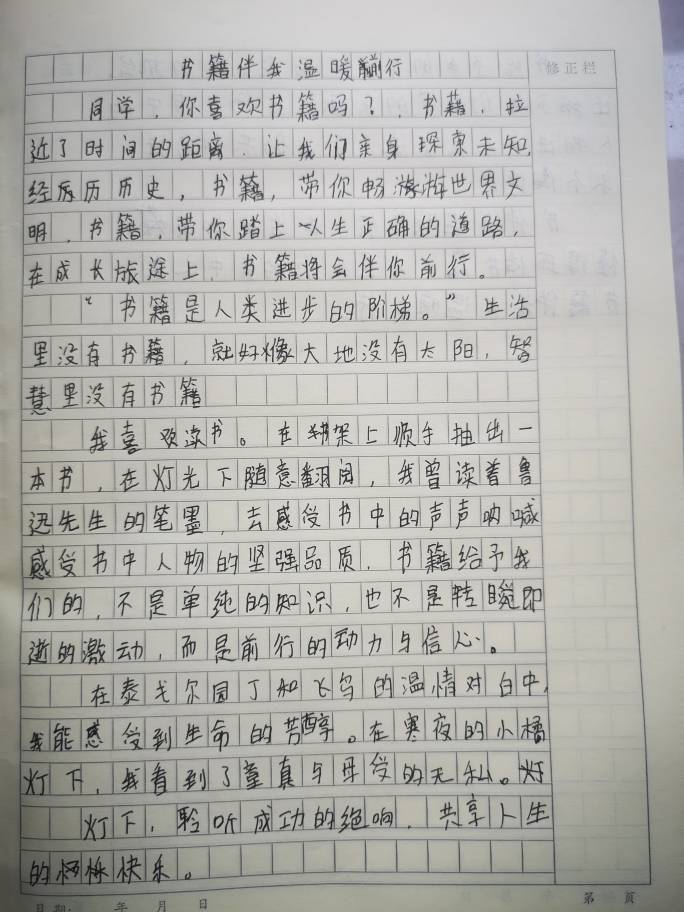 书籍伴我温暖前行
修正栏
同学，你喜欢书籍吗？，书籍，拉
近了时间的距离，让我们亲身探索未知，
经历历史，书籍，带你畅游世界文
明，书籍，带你踏上人生正确的道路，
在成长旅途上，书籍将会伴你前行。
“书籍是人类进步的阶梯。”生活
里没有书籍，就好像大地没有太阳，智
慧里没有书籍
我喜欢读书。在书架上顺手抽出一
本书，在灯光下随意翻阅，我曾读着鲁
迅先生的笔墨，去感受书中的声声呐喊
感受书中人物的坚强品质，书籍给予我
们的，不是单纯的知识，也不是转瞬即
逝的激动，而是前行的动力与信心。
在泰戈尔园丁和飞鸟的温情对白中，
我能感受到生命的芳醇。在寒夜的小橘
灯下，我看到了童真与母爱的无私。灯
灯下，聆听成功的绝响，共享人生
的快乐。
日期： 年 月 日
第 页